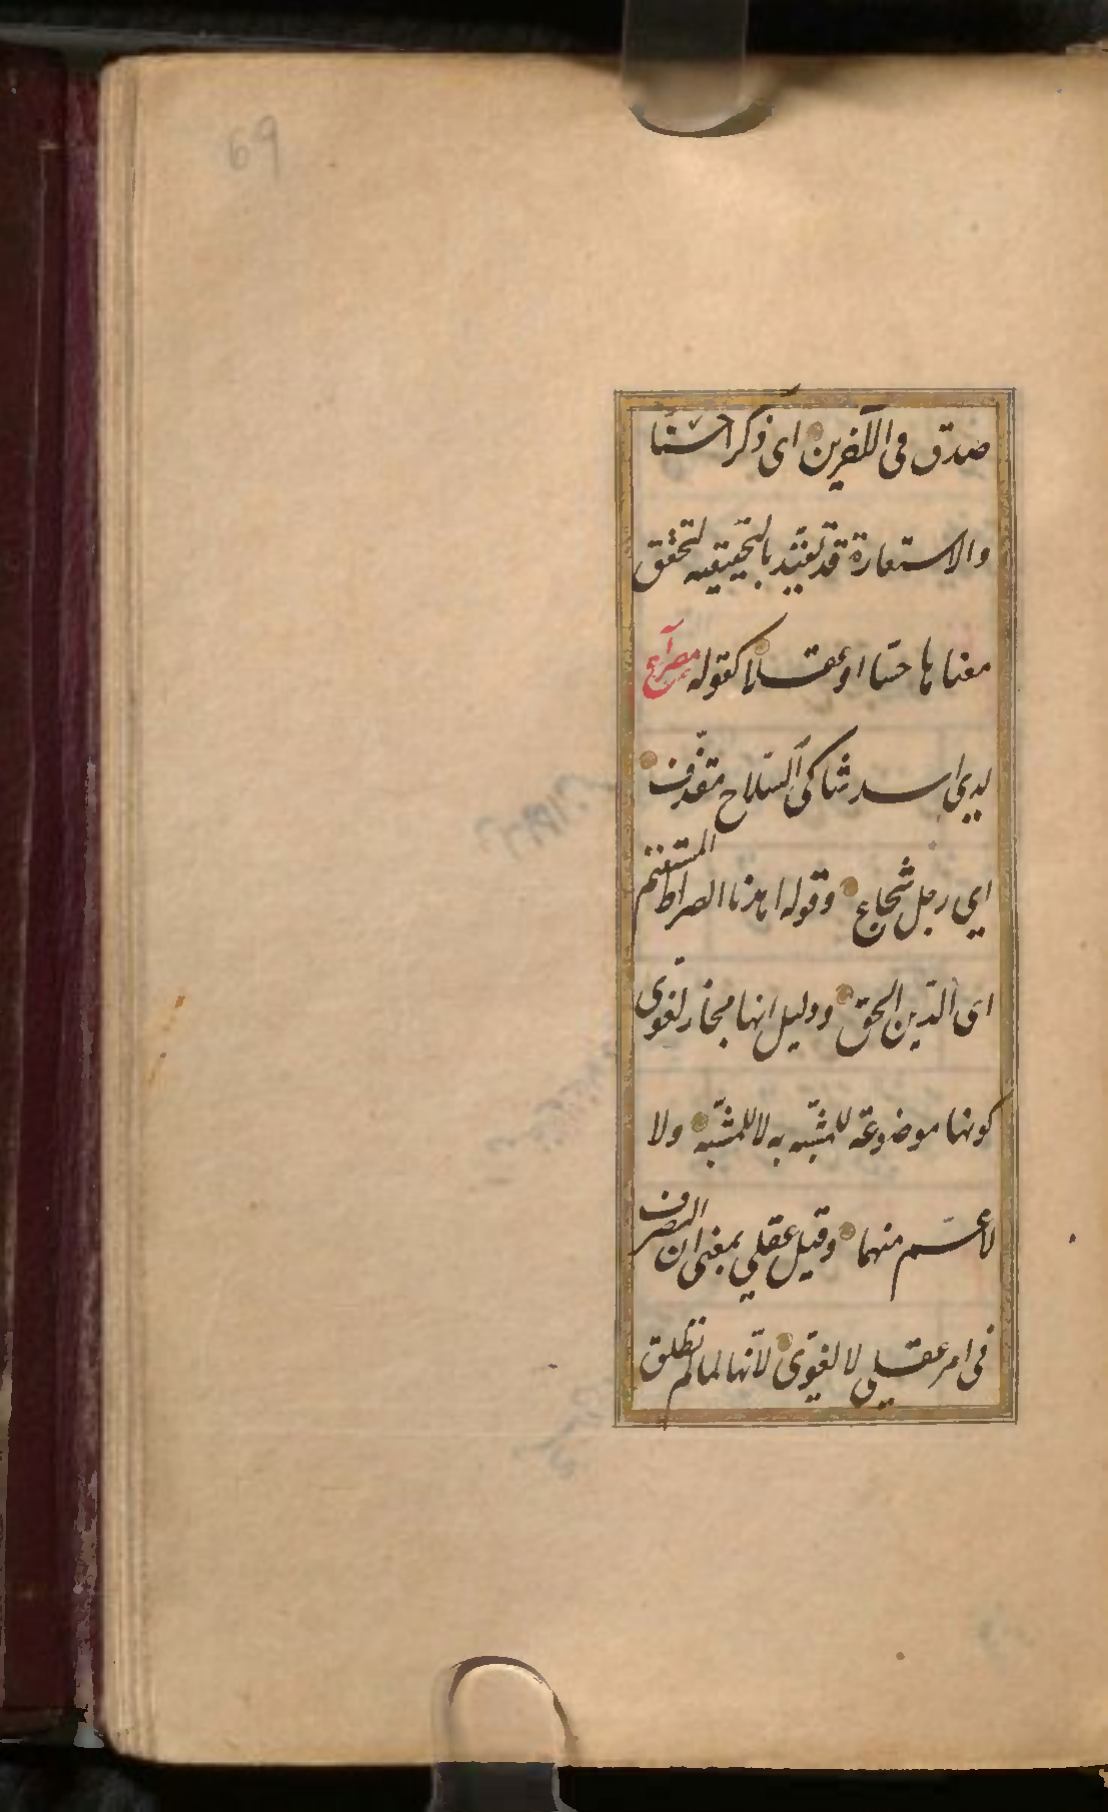 69
صدق فى الآخرين اى ذكرا حسنا
والاستعارة قد تقيّد بالتحقيقيه لتحقق
معناها حسّا او عقلا كقوله مصراع
لدى اسد شاكى السّلاح مقذّف
اى رجل شجاع وقوله اهدنا الصراط المستقيم
اى الدّين الحق ودليل انها مجاز لغوىّ
كونها موضوعة للمشبّه به لا للمشبّه ولا
لاعمّ منهما وقيل عقلي بمعنى ان التصرف
فى امر عقلي لا لغوىّ لانّها لما لم تطلق